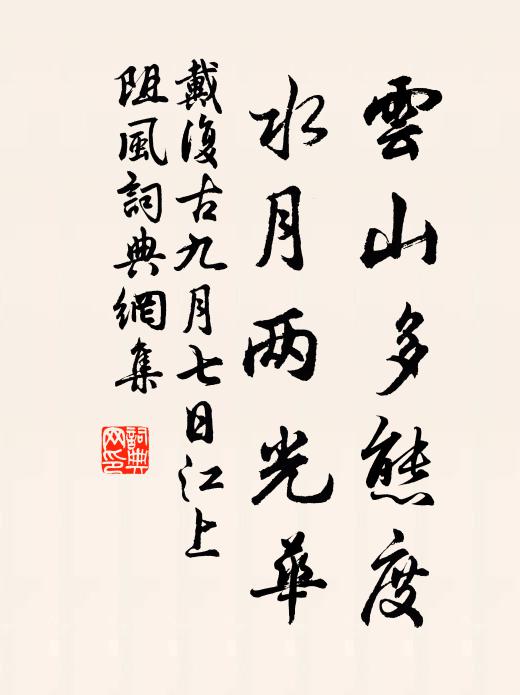 雲山多態度
水月两光華
戴復古九月七日江上
阻風詞典網集
詞典網印